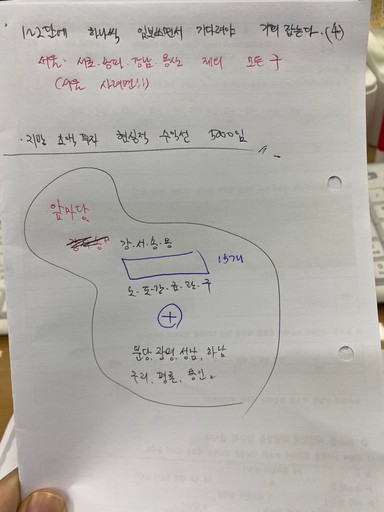 1~2달에 하나씩 임보쓰면서 기다려야 기회 잡는다. (4)
서울: 서초. 송파. 강남. 용산 제외 모든 구
(서울 사례면!!)
· 지방 소액투자 현실적 수익선 5000임
앞마당
강·서·송·용
15개
노·도·강·금·관·구
+
분당, 광명, 성남, 하남
구리, 평촌, 용인.